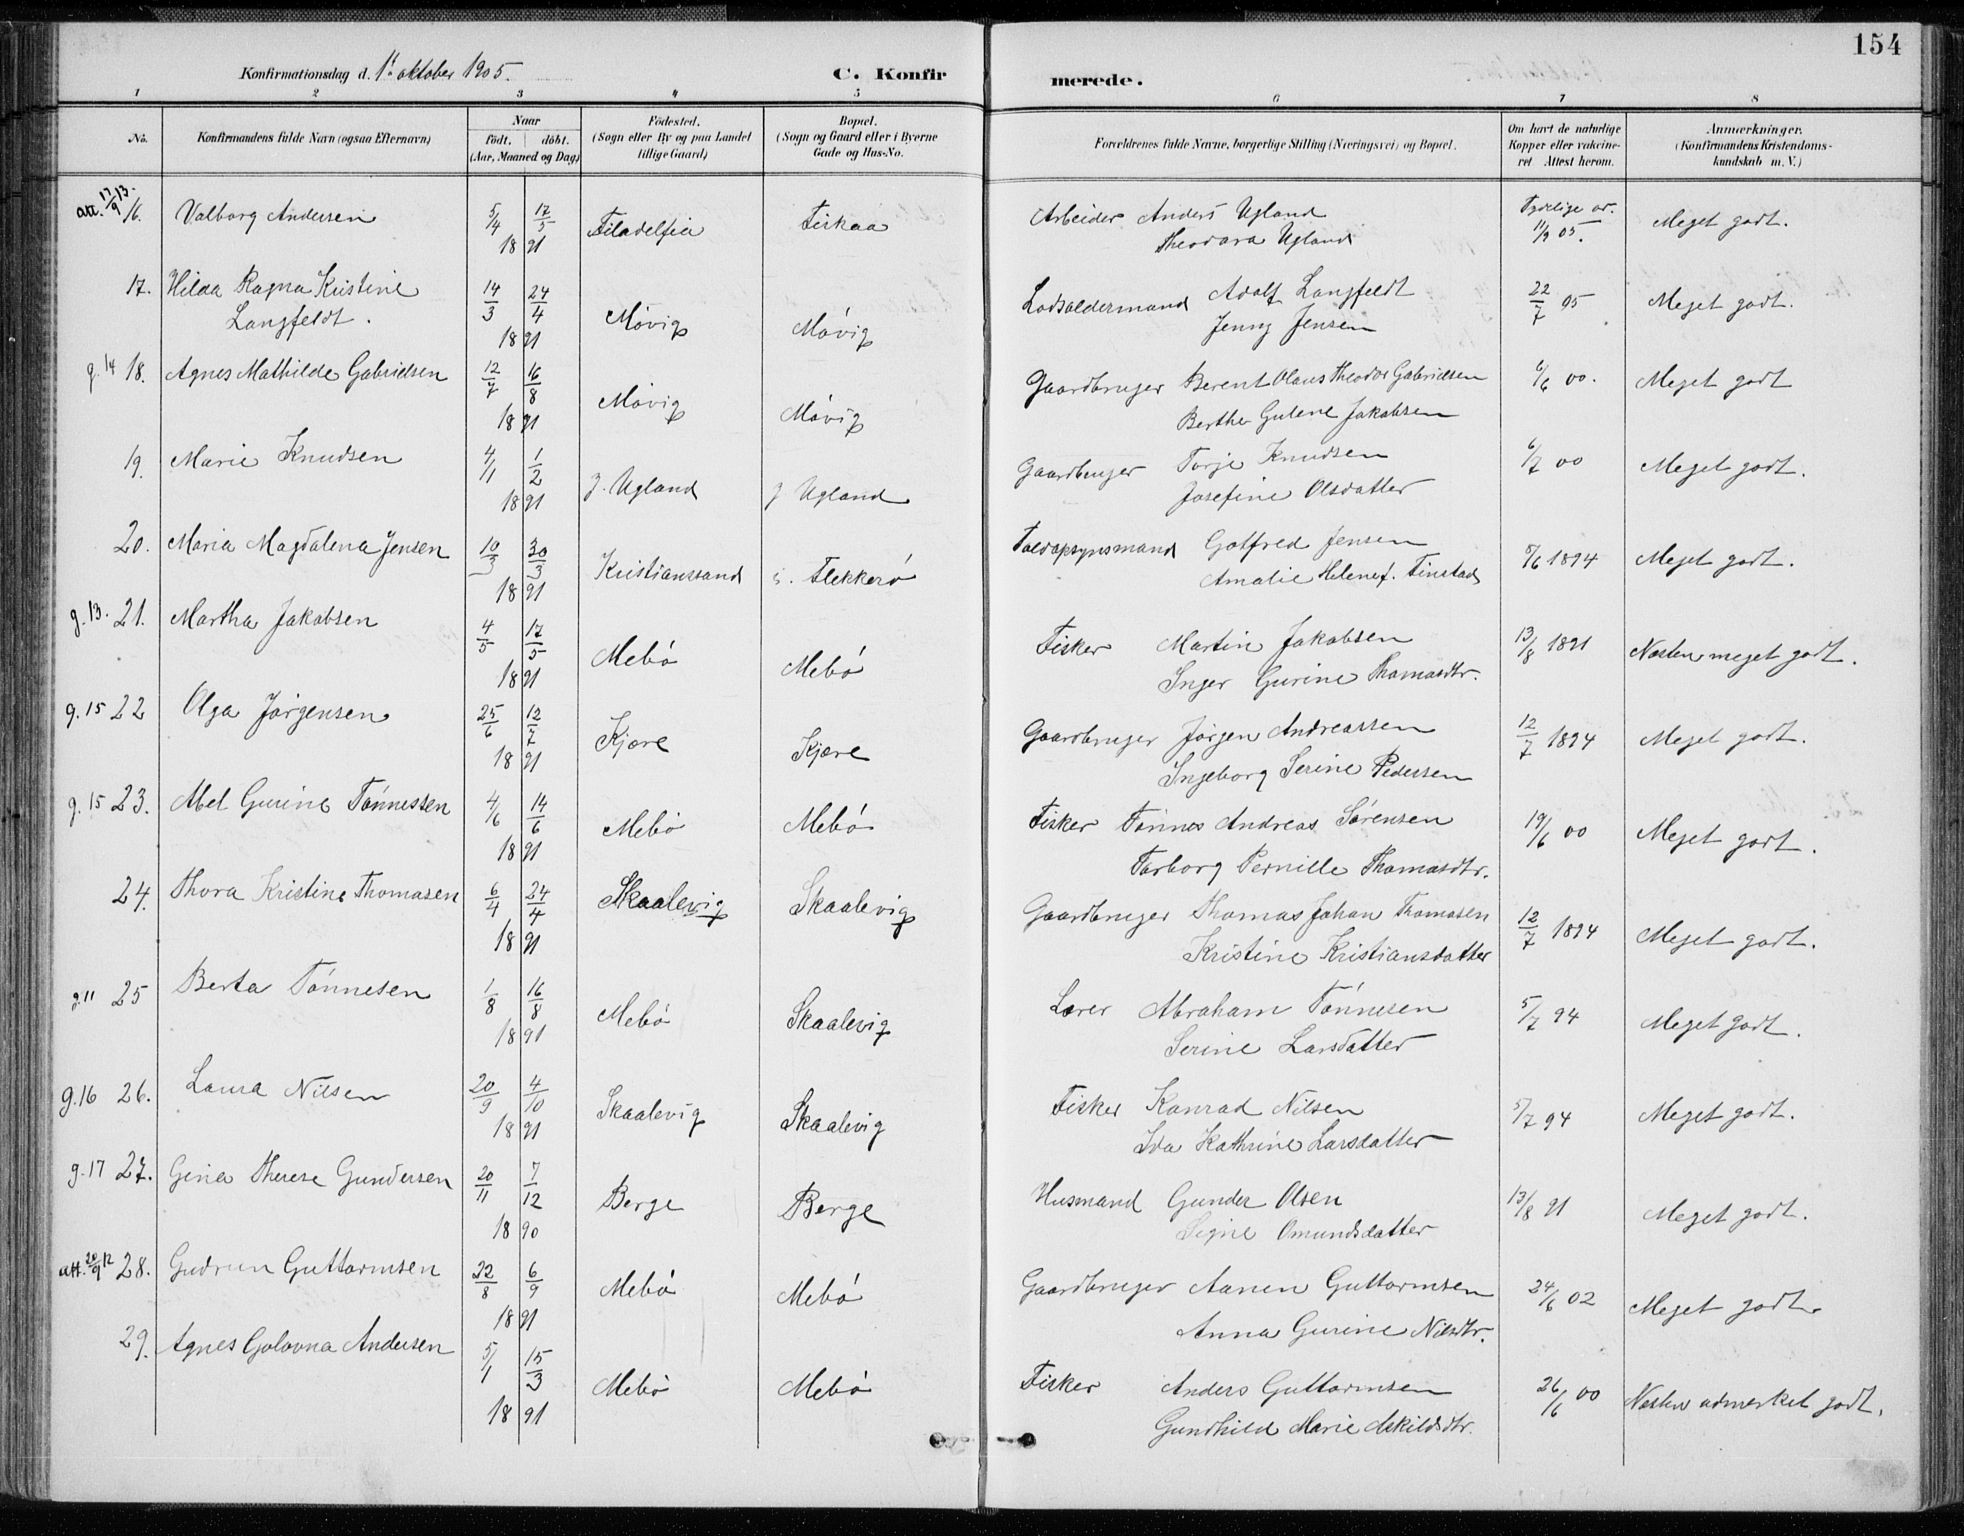 154
Konfirmationsdag d. 1ste oktober 1905. C. Konfirmerede.
1 2 3 4 5 6 7 8
No. Konfirmandens fulde Navn (ogsaa Efternavn) Naar født. døbt. (Aar, Maaned og Dag) Födested. (Sogn eller By og paa Landet tillige Gaard) Bopæl. (Sogn og Gaard eller i Byerne Gade og Hus-No. Forældrenes fulde Navne, borgerlige Stilling (Næringsvei) og Bopæl. Om havt de naturlige Kopper eller vakcineret Attest herom. Anmærkninger. (Konfirmandens Kristendomskundskab m. V.)
att. 17/9 13. 16. Valborg Andersen 5/4 17/5 1891 Filadelfia Fiskaa Arbeider Anders Ugland Tydelige ar. 11/9 05. Meget godt.
Theodora Ugland
17. Hilda Ragna Kristine 14/3 24/4 1891 Møvig Møvig Lodsoldermand Adolf Langfeldt 22/7 05 Meget godt.
Langfeldt. Jenny Jensen
g. 14 18. Agnes Mathilde Gabrielsen 12/7 16/8 1891 Møvig Møvig Gaardbruger Berent Olaus Theodor Gabrielsen 6/6 00. Meget godt
Berthe Gulene Jakobsen
19. Marie Knudsen 4/1 1/2 1891 J. Ugland J. Ugland Gaardbruger Torje Knudsen 6/7 00 Meget godt.
Josefine Olsdatter
20. Maria Magdalena Jensen 10/3 30/3 1891 Kristianssand Flekkerø Toldopsynsmand Gotfred Jensen 5/6 1894 Meget godt.
Amalie Helene f. Finstad
g. 13. 21. Martha Jakobsen 4/5 17/5 1891 Mebø Mebø Fisker Martin Jakobsen 13/8 1891 Næsten meget godt.
Inger Gurine Thomasdtr.
g. 15 22 Olga Jørgensen 25/6 12/7 1891 Kjære Kjære Gaardbruger Jørgen Andreassen 12/7 1894 Meget godt.
Ingeborg Serine Pedersen
g. 15 23. Abel Gurine Tønnessen 4/6 14/6 1891 Mebø Mebø Fisker Tønnes Andreas Sørensen 19/6 00 Meget godt.
Torborg Pernille Thomasdtr.
24. Thora Kristine Thomasen 6/4 24/4 1891 Skaalevig Skaalevig Gaardbruger Thomas Johan Thomasen 12/7 1894 Meget godt.
Kristine Kristiansdatter
g. 11 25 Berta Tønnesen 1/8 16/8 1891 Mebø Skaalevig Lærer Abraham Tønnesen 5/7 94 Meget godt.
Serine Larsdatter
g. 16 26. Laura Nilsen 20/9 4/10 1891 Skaalevig Skaalevig Fisker Konrad Nilsen 5/7 94 Meget godt.
Ida Kathrine Larsdatter
g. 17 27. Gina Therese Gundersen 20/11 7/12 1890 Berge Berge Husmand Gunder Olsen 13/8 91 Meget godt.
Signe Omundsdatter
att. 20/9 12 28. Gudrun Guttormsen 22/8 6/9 1891 Mebø Mebø Gaardbruger Aanen Guttormsen 24/6 02 Meget godt.
Anna Gurine Nilsdtr.
29. Agnes Golovna Andersen 5/1 15/3 1891 Mebø Mebø Fisker Anders Guttormsen 26/6 00 Næsten udmerket godt.
Gunhild Marie Askildsdtr.